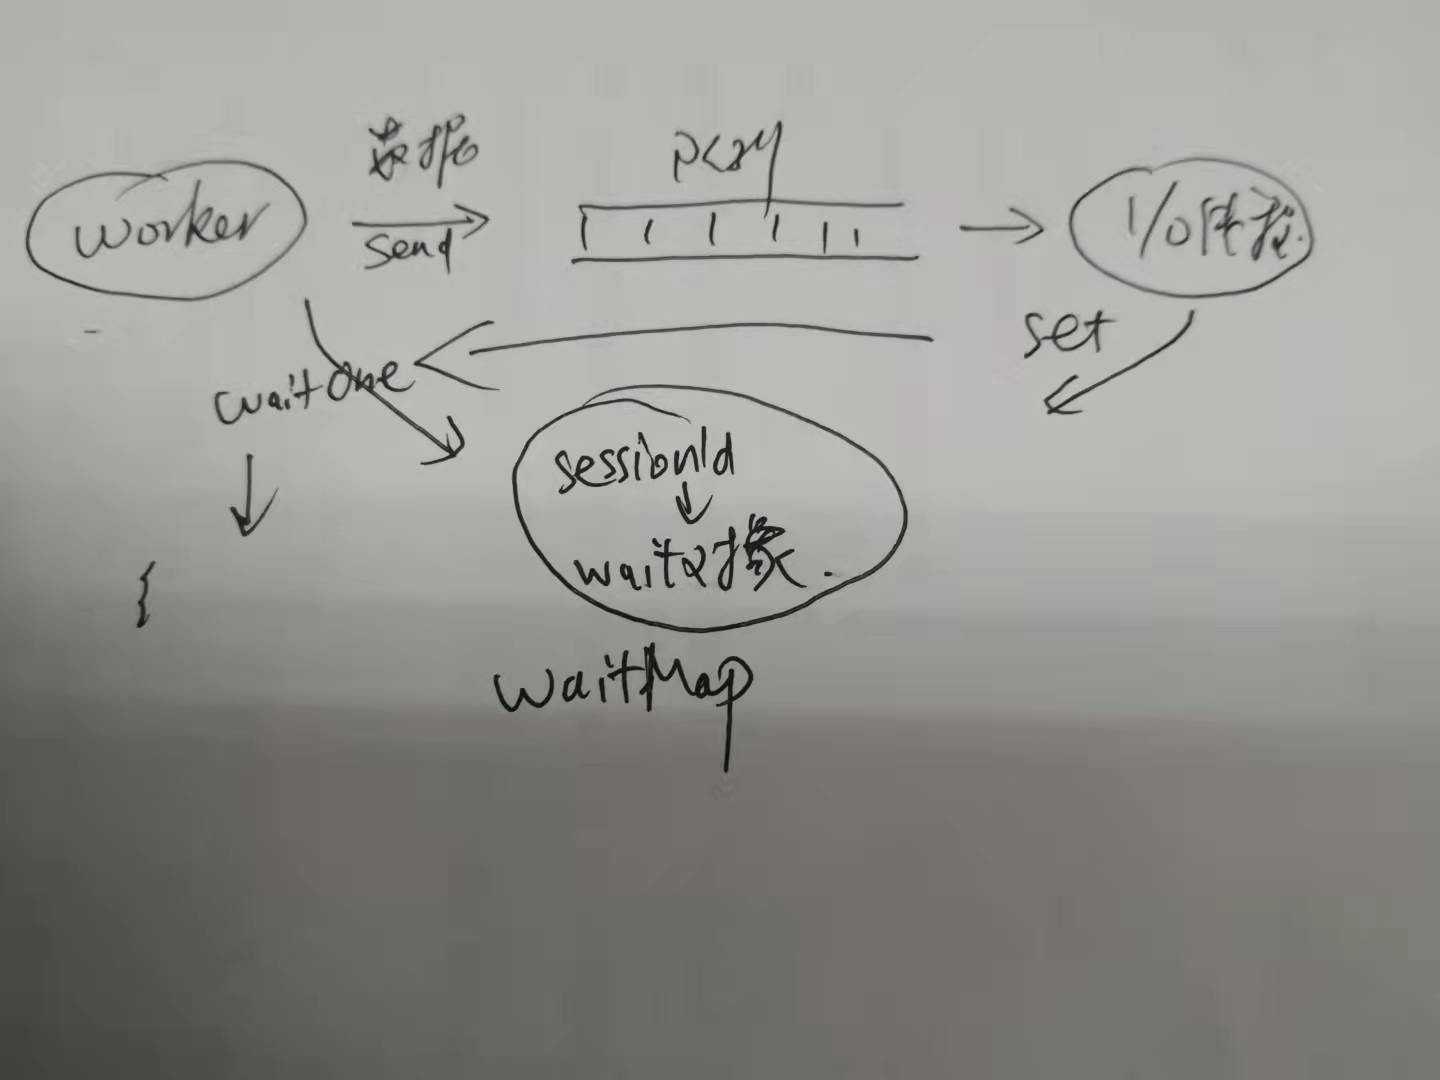 数据
worker
send
I/O
set
waitOne
sessionId
wait对象.
waitMap